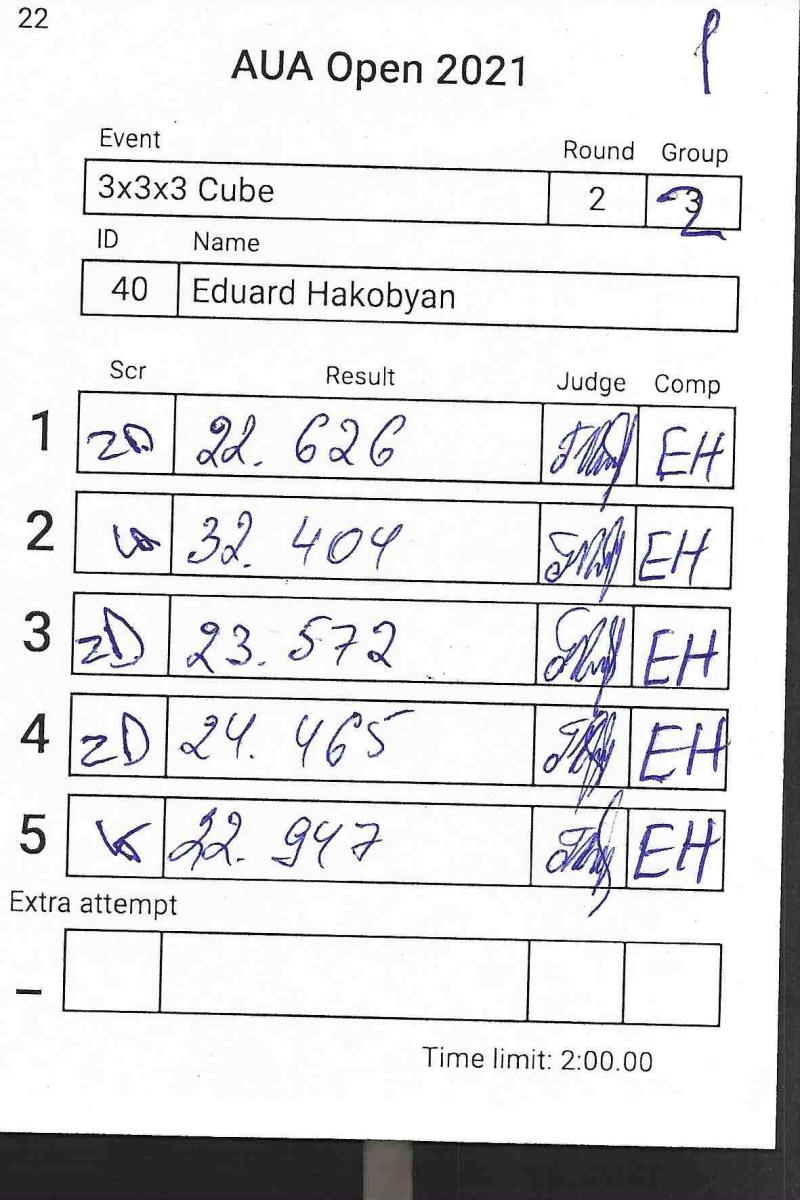 22
AUA Open 2021
Event Round Group
3x3x3 Cube 2 2
ID Name
40 Eduard Hakobyan
Scr Result Judge Comp
1 ZD 22.626 EH
2 32.404 EH
3 ZD 23.572 EH
4 ZD 24.465 EH
5 22.947 EH
Extra attempt
–
Time limit: 2:00.00